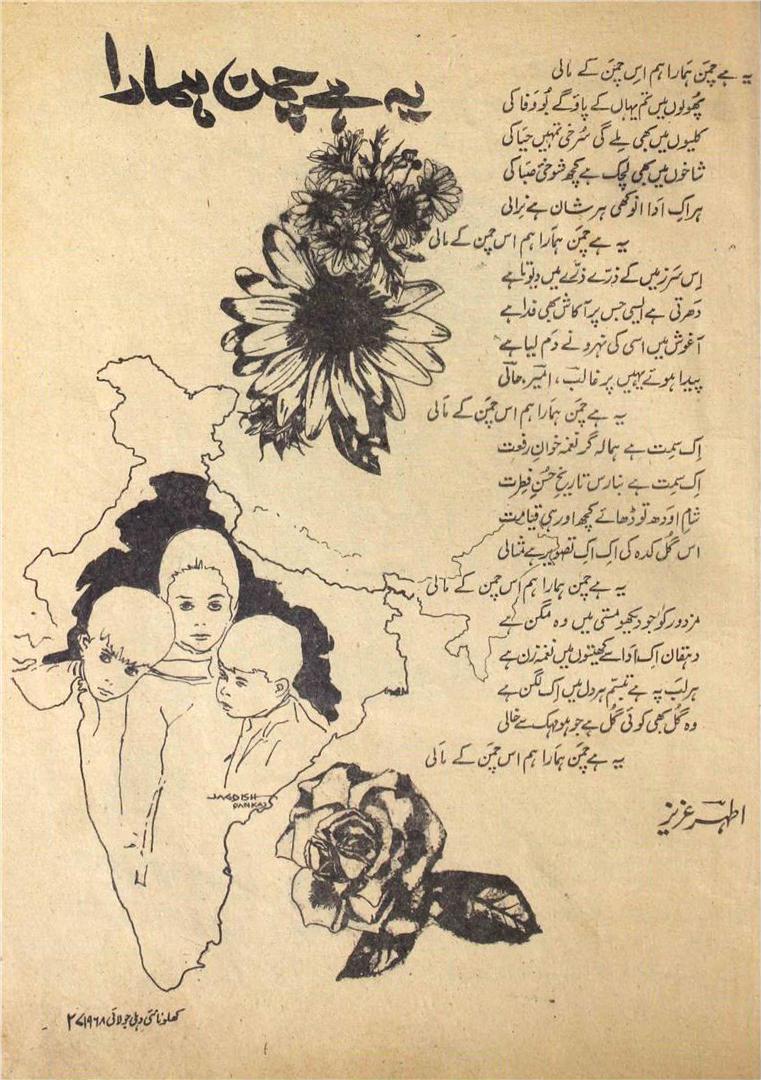 یہ ہے چمن ہمارا
یہ ہے چمن ہمارا ہم اس چمن کے مالی
پھولوں میں تم یہاں کے پاؤ گے بُو وفا کی
کلیوں میں بھی ملے گی سُرخی تمہیں حیا کی
شاخوں میں بھی لچک ہے کچھ شوخیٔ صبا کی
ہر اِک ادا انوکھی ہر شان ہے نرالی
یہ ہے چمن ہمارا ہم اس چمن کے مالی
اِس سرزمیں کے ذرّے ذرّے میں دیوتا ہے
دَھرتی ہے ایسی جس پر آکاش بھی فدا ہے
آغوش میں اسی کی نہرو نے دَم لیا ہے
پیدا ہوئے یہیں پر غالبؔ، امیرؔ، حالیؔ
یہ ہے چمن ہمارا ہم اس چمن کے مالی
اِک سمت ہے ہمالہ گر نغمہ خوانِ رفعت
اِک سمت ہے بنارس تاریخِ حُسنِ فطرت
شامِ اودھ تو ڈھائے کچھ اور ہی قیامت
اس گُل کدہ کی اِک اِک تصویر ہے مثالی
یہ ہے چمن ہمارا ہم اس چمن کے مالی
مزدور کو جو دیکھو مستی میں وہ مگن ہے
دہقان اِک ادا سے کھیتوں میں نغمہ زن ہے
ہر لب پہ ہے تبسّم ہر دل میں اِک لگن ہے
وہ گُل بھی کوئی گُل ہے جو ہو مہک سے خالی
یہ ہے چمن ہمارا ہم اس چمن کے مالی
اطہرؔ عزیز
JAGDISH
PANKAJ
کھلونا نئی دہلی جولائی ۱۹۶۸ ۲۷